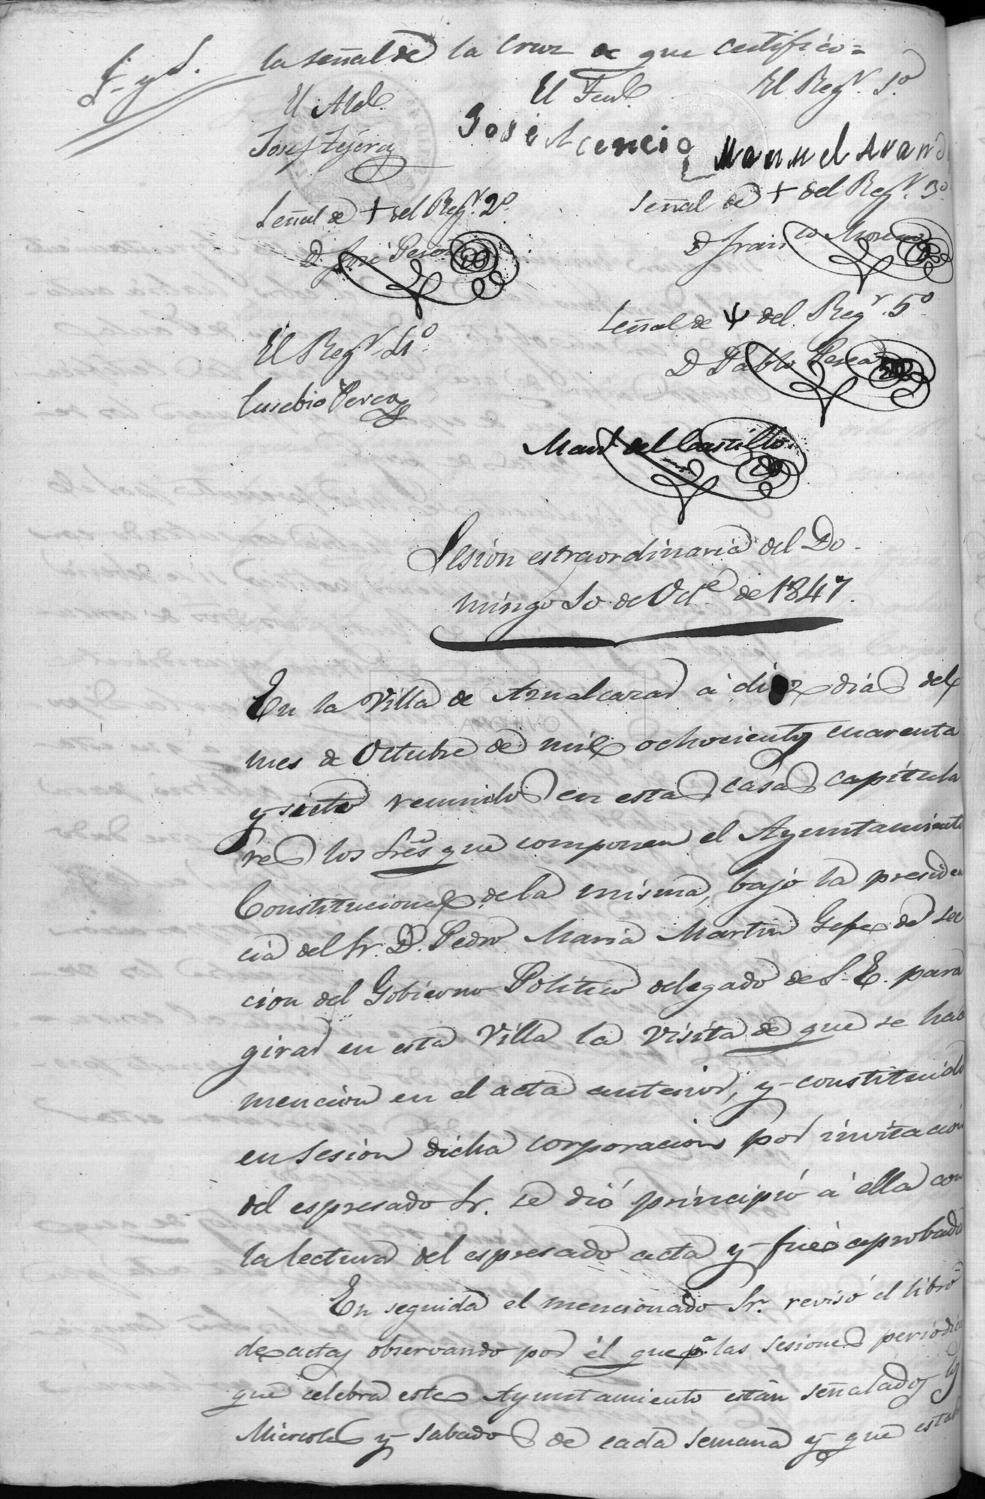 la señal de la Cruz de que certifico=
El Alde El Tente El Regr. 1º
José Tejero José Acencio Manuel Arand
Señal de + del Regr. 2º Señal de + del Regr. 3º
D José Perea D Franco Moreno
El Regr. 4º Señal de + del Regr. 5º
Eusebio Perea D Pablo Perea
Manl del Castillo
Sesion estraordinaria del Do-
mingo 10 de Octe. de 1847.
En la Villa de Aznalcazar á diez dias del
mes de Octubre de mil ochocientos cuarenta
y siete reunidos en estas casas capitula
res los Sres que componen el Ayuntamiento
Constitucional de la misma, bajo la presiden
cia del Sr. D. Pedro Maria Martin Gefe de sec
cion del Gobierno Politico delegado de S. E. para
girar en esta Villa la Visita de que se hace
mencion en el acta anterior, y constituida
en sesion dicha corporacion por invitacion
del espresado Sr. se dió principió á ella con
la lectura del espresado acta y fué aprobado
En seguida el mencionado Sr. revisó el libro
de actas observando por él que pa. las sesiones periodicas
que celebra este Ayuntamiento están señalados los
Miercoles y sabados de cada semana y que estab